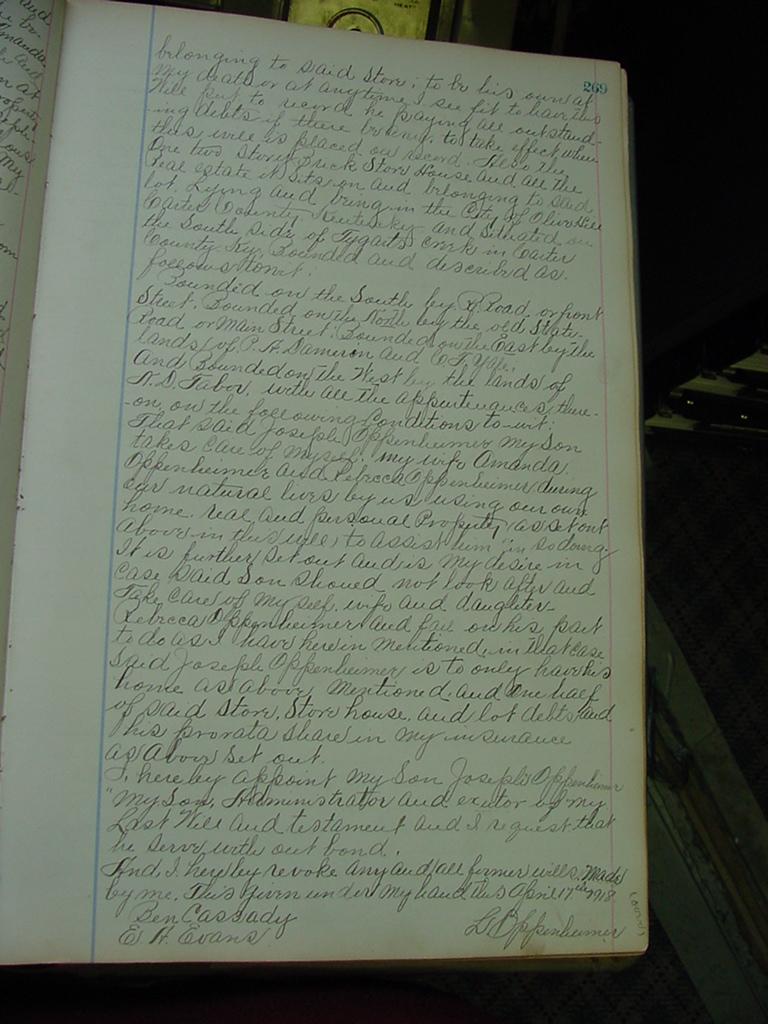 269
belonging to said store; to be his own at
My death or at anytime I see fit to have this
Will put to record he paying all outstand-
ing debts if there be any, to take effect when
this will is placed on record. Also the
One two Story Brick Store House and all the
real estate it sits on and belonging to said
lot, Lying and being in the City of Olive Hill
Carter County, Kentucky and situated on
the South side of Tygarts creek in Carter
County Ky, Bounded and described as
follows, towit:
Bounded on the South by R Road or front
Street. Bounded on the North by the old State
Road or Main Street. Bounded on the East by the
lands of P. H. Dameron and
And Bounded on the West by the lands of
N. D. Tabor, with all the appurtenances there-
on, on the following Conditions to-wit:
That said Joseph Oppenheimer My Son
takes care of Myself, my wife Amanda
Oppenheimer and Rebecca Oppenheimer during
our natural lives by us using our own
home, real and personal Property as set out
above in this will to assist him in so doing.
It is further set out and is My desire in
case said Son should not look after and
Take care of My self, wife and daughter
Rebecca Oppenheimer and fail on his part
to do as I have herein mentioned, in that case
said Joseph Oppenheimer is to only have his
home as above Mentioned and One half
of said Store, Store house, and lot debts and
his prorata share in My insurance
as above set out.
I, hereby appoint My Son Joseph Oppenheimer
"My Son, Administrator and exetor of my
Last Will and testament and I request that
he serve with out bond.
And, I hereby revoke any and all former wills, Made
by me. This given under My hand this April 17th 1918
Ben Cassady
E H. Evans L Oppenheimer